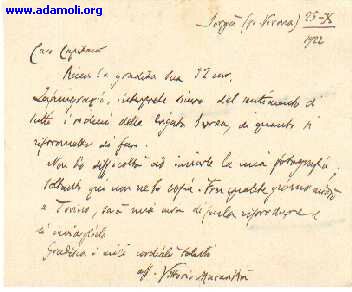 www.adamoli.org
Sorgà (pr. Verona) 25-X
1922
Caro Capitano
Ricevo la gradita Sua 12 corr.
La ringrazio, interprete sincero del sentimento di
tutti i reduci della brigata Ivrea, di quanto si
ripromette di fare.
Non ho difficoltà ad inviarle la mia fotografia,
soltanto qui non ne ho copia. Fra qualche giorno andrò
a Torino, sarà mia cura di farla riprodurre e
di inviargliela
Gradisca i miei cordiali saluti
aff. Vittorio